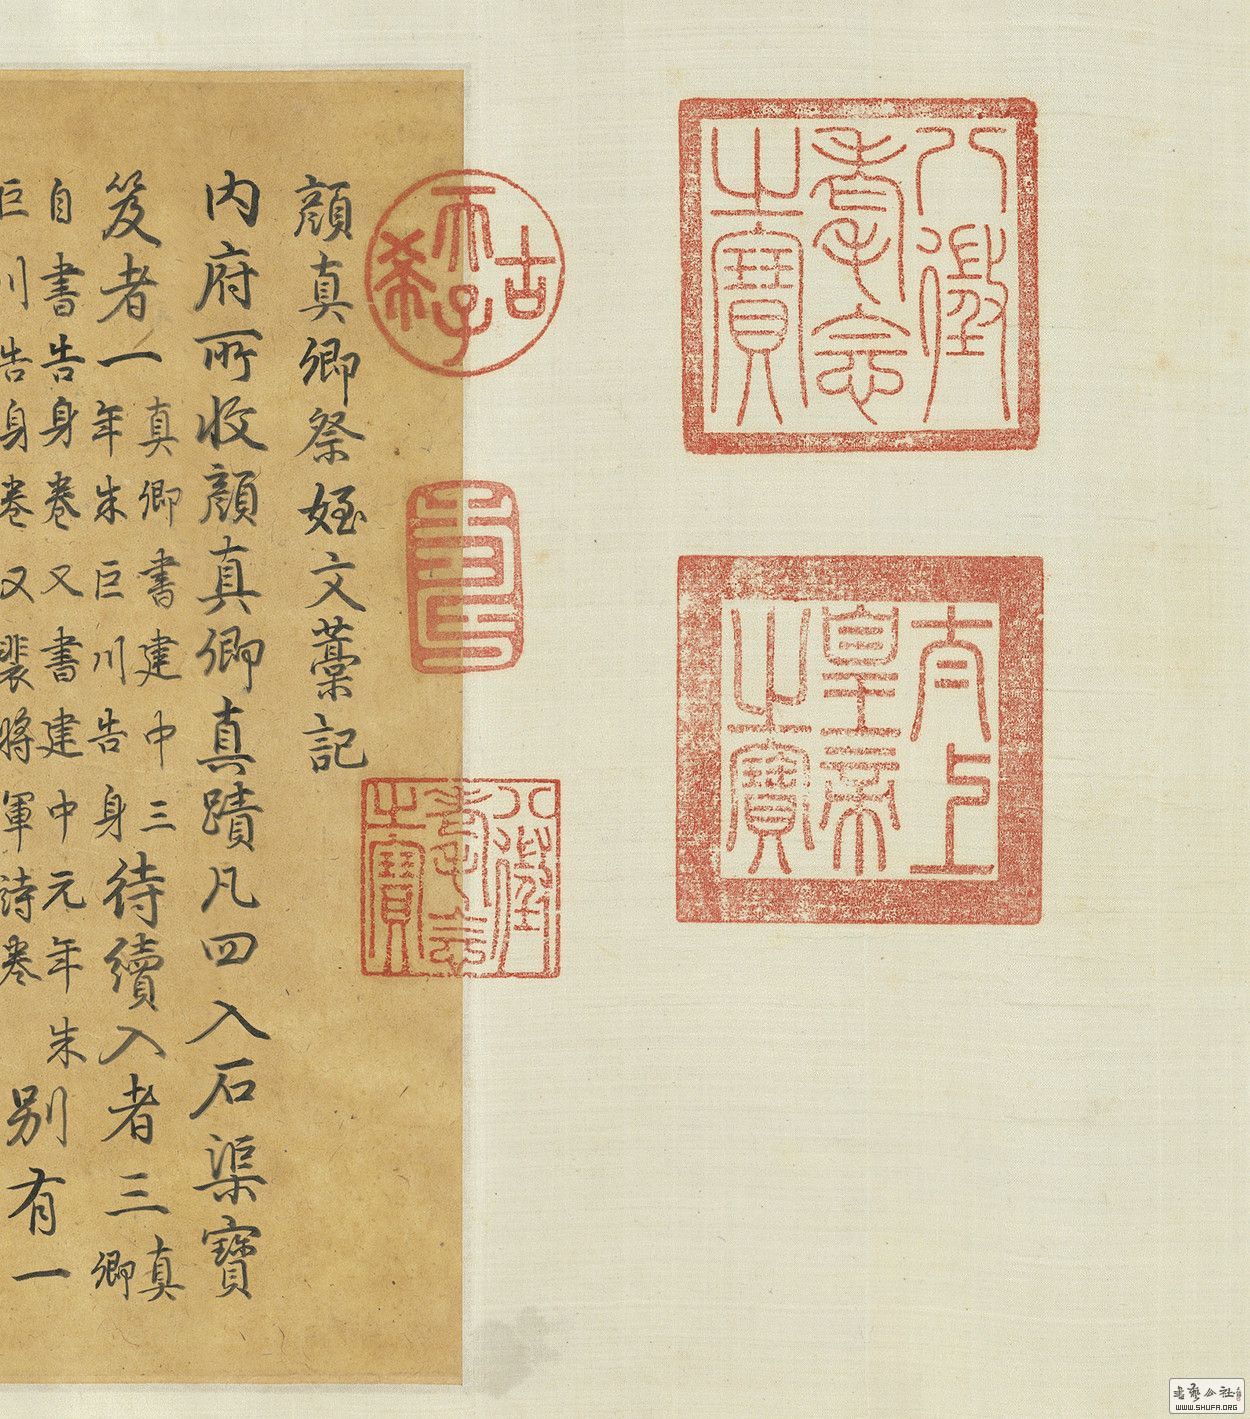 八徵耄念之寶
太上皇帝之寶
古希天子
壽
八徵耄念之寶
顏真卿祭姪文藁記
內府所收顏真卿真蹟凡四入石渠寶
笈者一真卿書建中三年朱巨川告身待續入者三真卿
自書告身卷又書建中元年朱巨川告身卷又裴將軍詩卷别有一
書藝公社
WWW.SHUFA.ORG